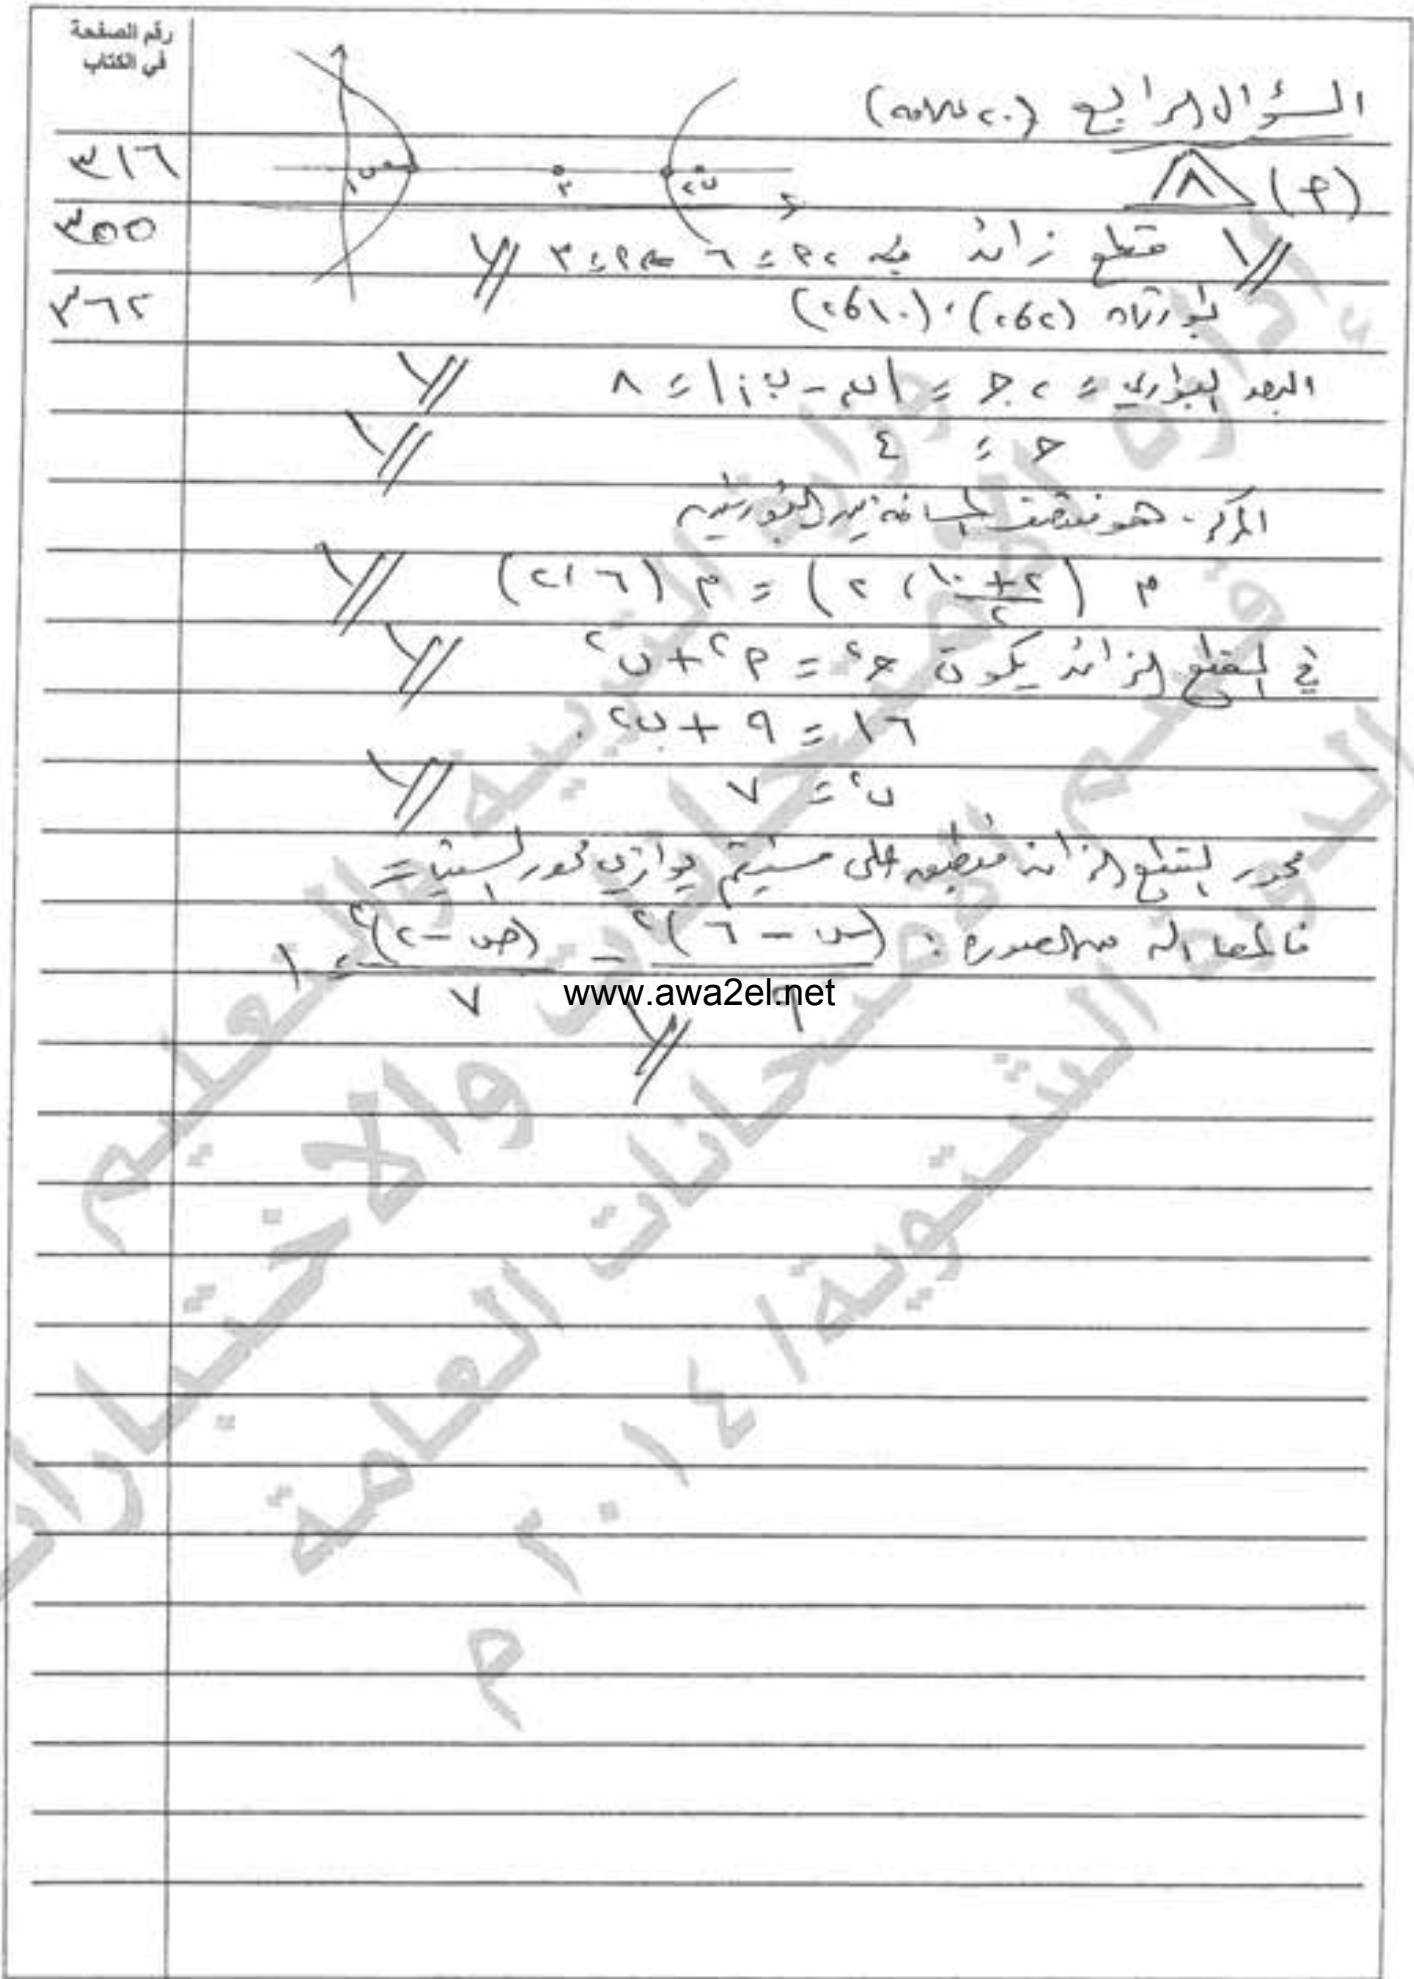 رقم الصفحة
في الكتاب
السؤال الرابع (٢٠ علامة)
٣١٦
(أ) ٨
٣٥٥
قطع زائد فيه ٢أ = ٦ ⇐ أ = ٣
٣٦٢
بؤرتاه (٢،٢)، (١٠،٢)
البعد البؤري = ٢جـ = |ب٢ - ب١| = ٨
جـ = ٤
المركز هو منتصف المسافة بين البؤرتين
م (٢+١٠/٢ ، ٢) = م (٦، ٢)
في القطع الزائد يكون جـ٢ = أ٢ + ب٢
١٦ = ٩ + ب٢
ب٢ = ٧
محور القطع الزائد منطبق على مستقيم يوازي محور السينات
فالمعادلة من الصورة: (س - ٦)٢/٩ - (ص - ٢)٢/٧ = ١
www.awa2el.net
وزارة التربية والتعليم
إدارة الامتحانات والاختبارات
قسم الامتحانات العامة
الدورة الشتوية / ٢٠١٤ م